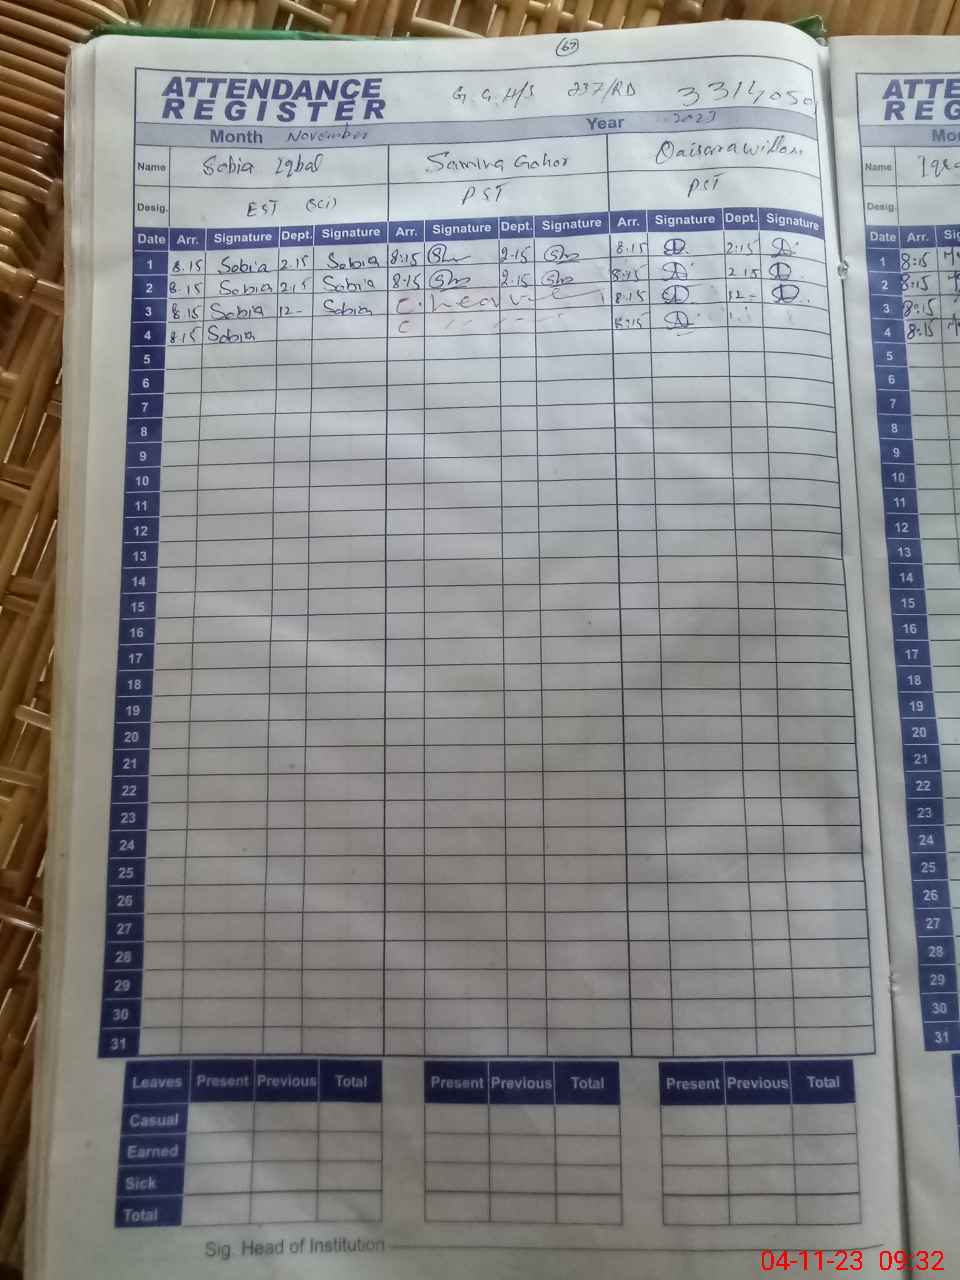 67
ATTENDANCE
REGISTER
G.G.H/S 237/RD 33140501
Month November Year 2023
Name Sobia Iqbal Samina
Desig. EST (Sci) PST PST
Date Arr. Signature Dept. Signature Arr. Signature Dept. Signature Arr. Signature Dept. Signature
1 8.15 Sobia 2.15 Sobia 8:15 2.15 8.15 2:15
2 8.15 Sobia 2.15 Sobia 8:15 2.15 8:15 2.15
3 8.15 Sobia 12- Sobia C. Leave 8:15 12-
4 8.15 Sobia C 8:15
5
6
7
8
9
10
11
12
13
14
15
16
17
18
19
20
21
22
23
24
25
26
27
28
29
30
31
Leaves Present Previous Total Present Previous Total Present Previous Total
Casual
Earned
Sick
Total
Sig. Head of Institution
ATTE
REG
Mo
Name Iqra
Desig.
Date Arr. Sig
1 8:15
2 8:15
3 8:15
4 8:15
5
6
7
8
9
10
11
12
13
14
15
16
17
18
19
20
21
22
23
24
25
26
27
28
29
30
31
04-11-23 09:32